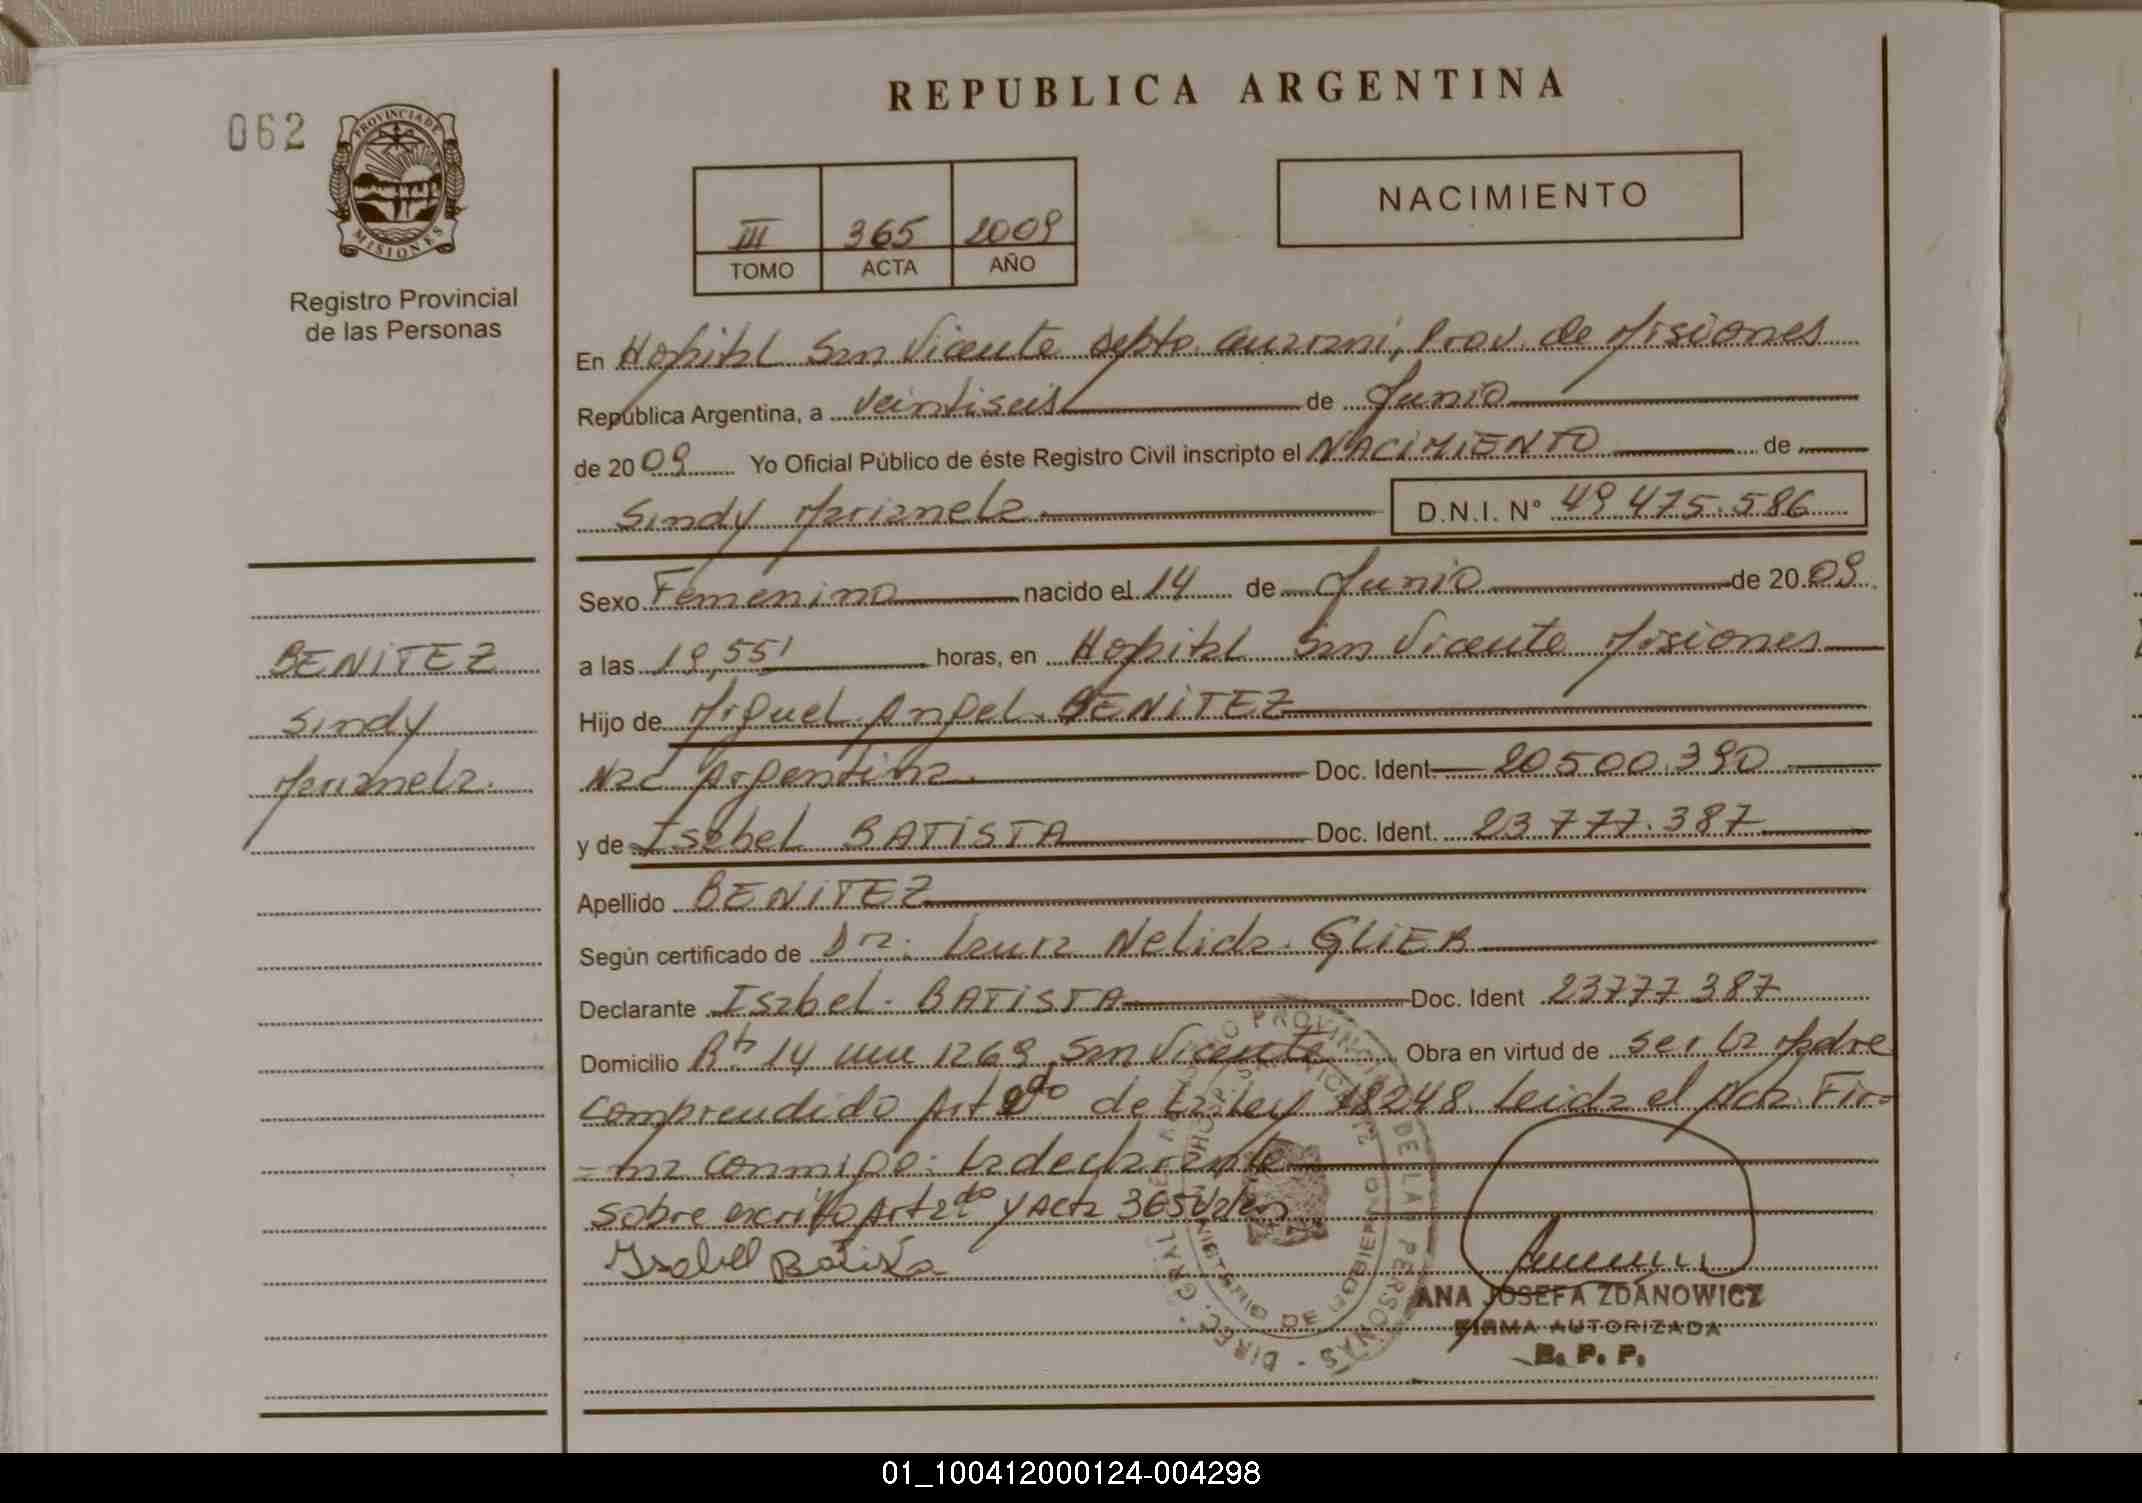 REPUBLICA ARGENTINA
062
PROVINCIA DE MISIONES
Registro Provincial
de las Personas
III 365 2009
TOMO ACTA AÑO
NACIMIENTO
En Hospital San Vicente Depto. Guarani, Prov. de Misiones
República Argentina, a veintiseis de Junio
de 2009 Yo Oficial Público de éste Registro Civil inscripto el NACIMIENTO de
Sindy Marianela D.N.I. N° 49 475.586
Sexo Femenino nacido el 14 de Junio de 2009
a las 19,55' horas, en Hospital San Vicente Misiones
Hijo de Miguel Angel BENITEZ
Nac Argentina. Doc. Ident 20 500.390
y de Isabel BATISTA Doc. Ident. 23 777.387
Apellido BENITEZ
Según certificado de Dra: Laura Nelida GLIER
Declarante Isabel BATISTA Doc. Ident 23777 387
Domicilio 14 1269 San Vicente Obra en virtud de ser la Madre
comprendido Art 2do de la Ley 18248. Leida el Acta Fir-
=ma conmigo: la declarante
sobre escrito Art 2do y Acta 365 Valen
Isabel Batista
BENITEZ
Sindy
Marianela.
DIREC. GRAL. DEL REGISTRO PROVINCIAL DE LAS PERSONAS
MINISTERIO DE GOBIERNO
SAN VICENTE
ANA JOSEFA ZDANOWICZ
FIRMA AUTORIZADA
R. P. P.
01_100412000124-004298